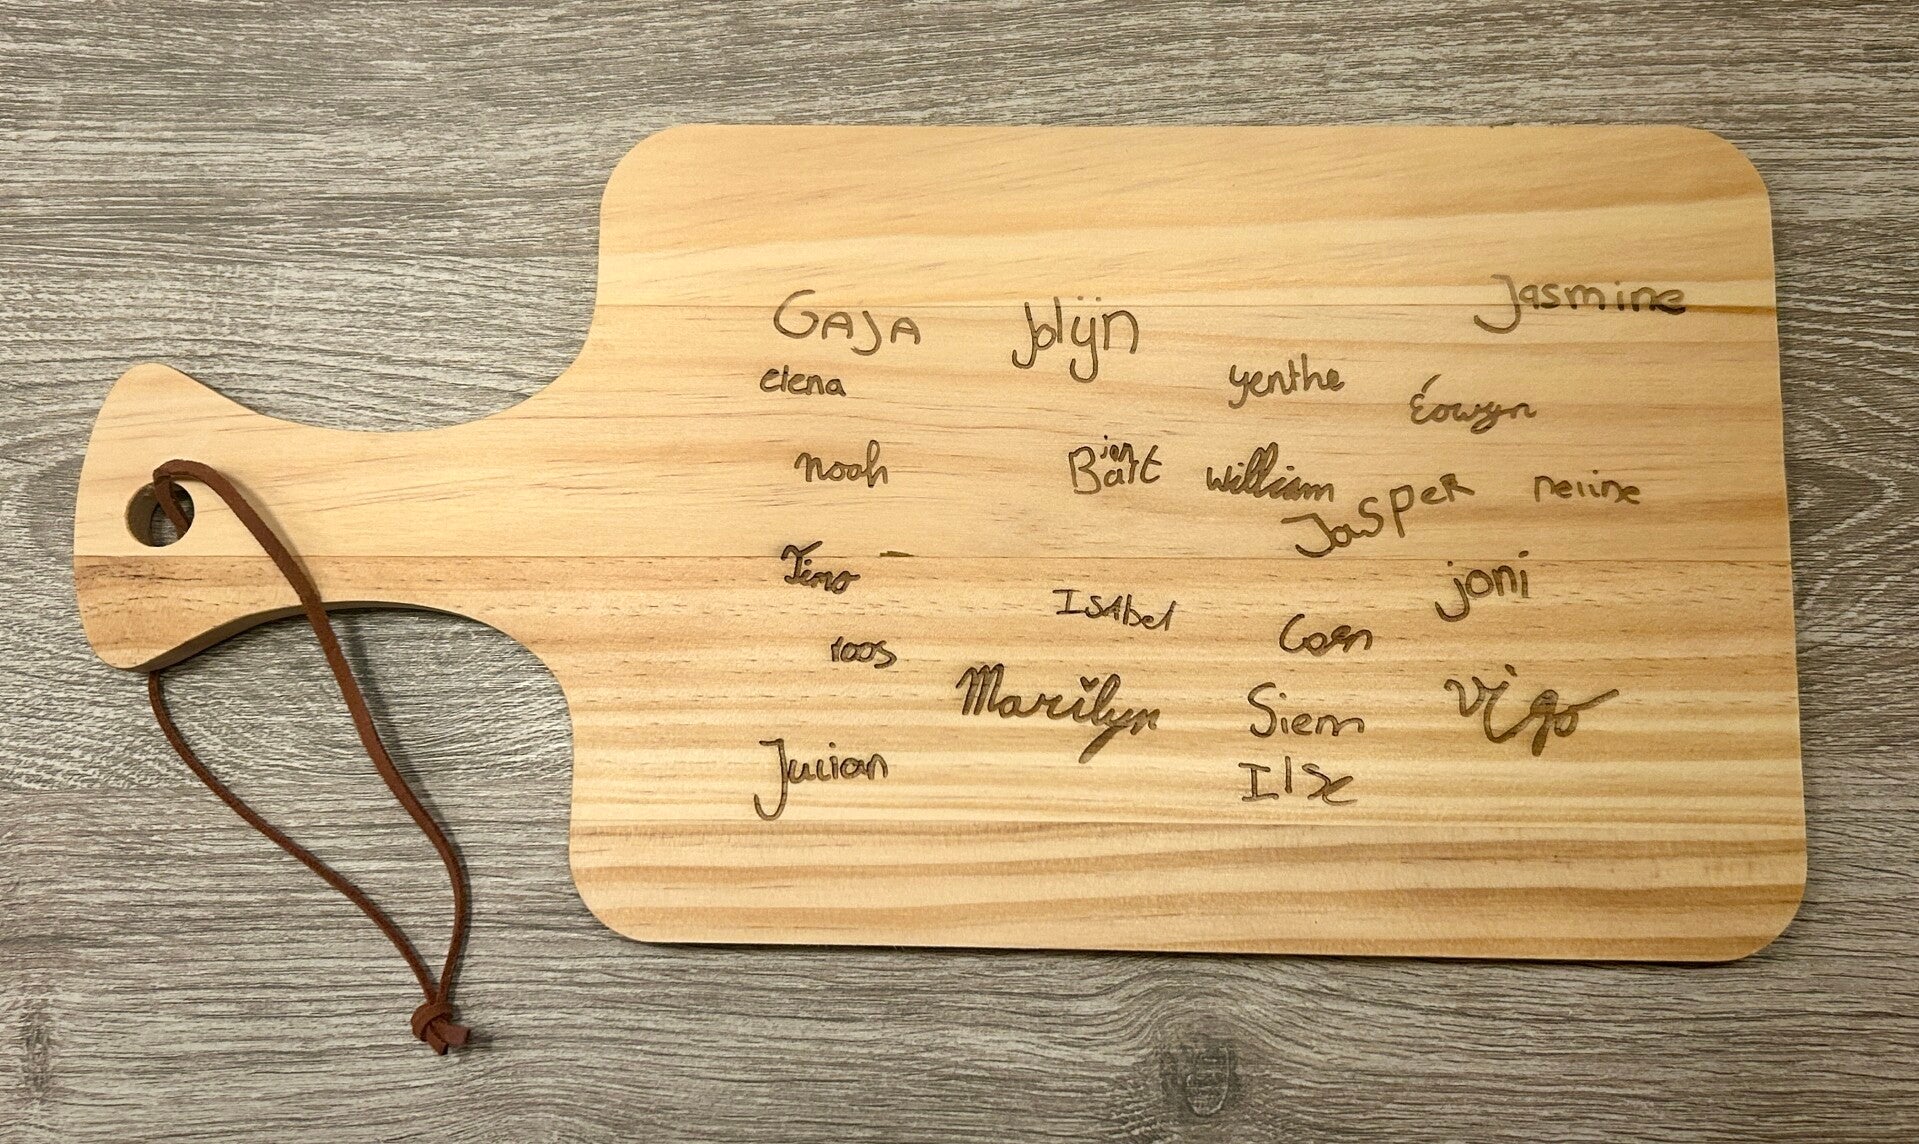 Jasmine
GAJA
Jolijn
elena
yenthe
Éowyn
noah
Bart
jan
William
Jasper
neline
Timo
joni
Isabel
Coen
roos
Marilyn
Siem
Vigo
Julian
Ilse